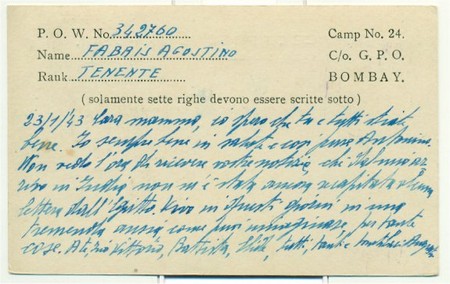 P. O. W. No. 342760
Camp No. 24.
Name FABRIS AGOSTINO
C/o. G. P. O.
Rank TENENTE
BOMBAY.
(solamente sette righe devono essere scritte sotto)
23/1/43 Cara mamma, io spero che tu e tutti stiate
bene. Io sempre bene in salute e così pure Antonino.
Non vedo l'ora di ricevere vostre notizie, chi dal mio ar
rivo in India non m'è stata ancora recapitata alcuna
lettera dall'Egitto. Vivo in questi giorni in una
tremenda ansia come puoi immaginare per tante
cose. A te, Vittoria, Battista, tutti, tanti